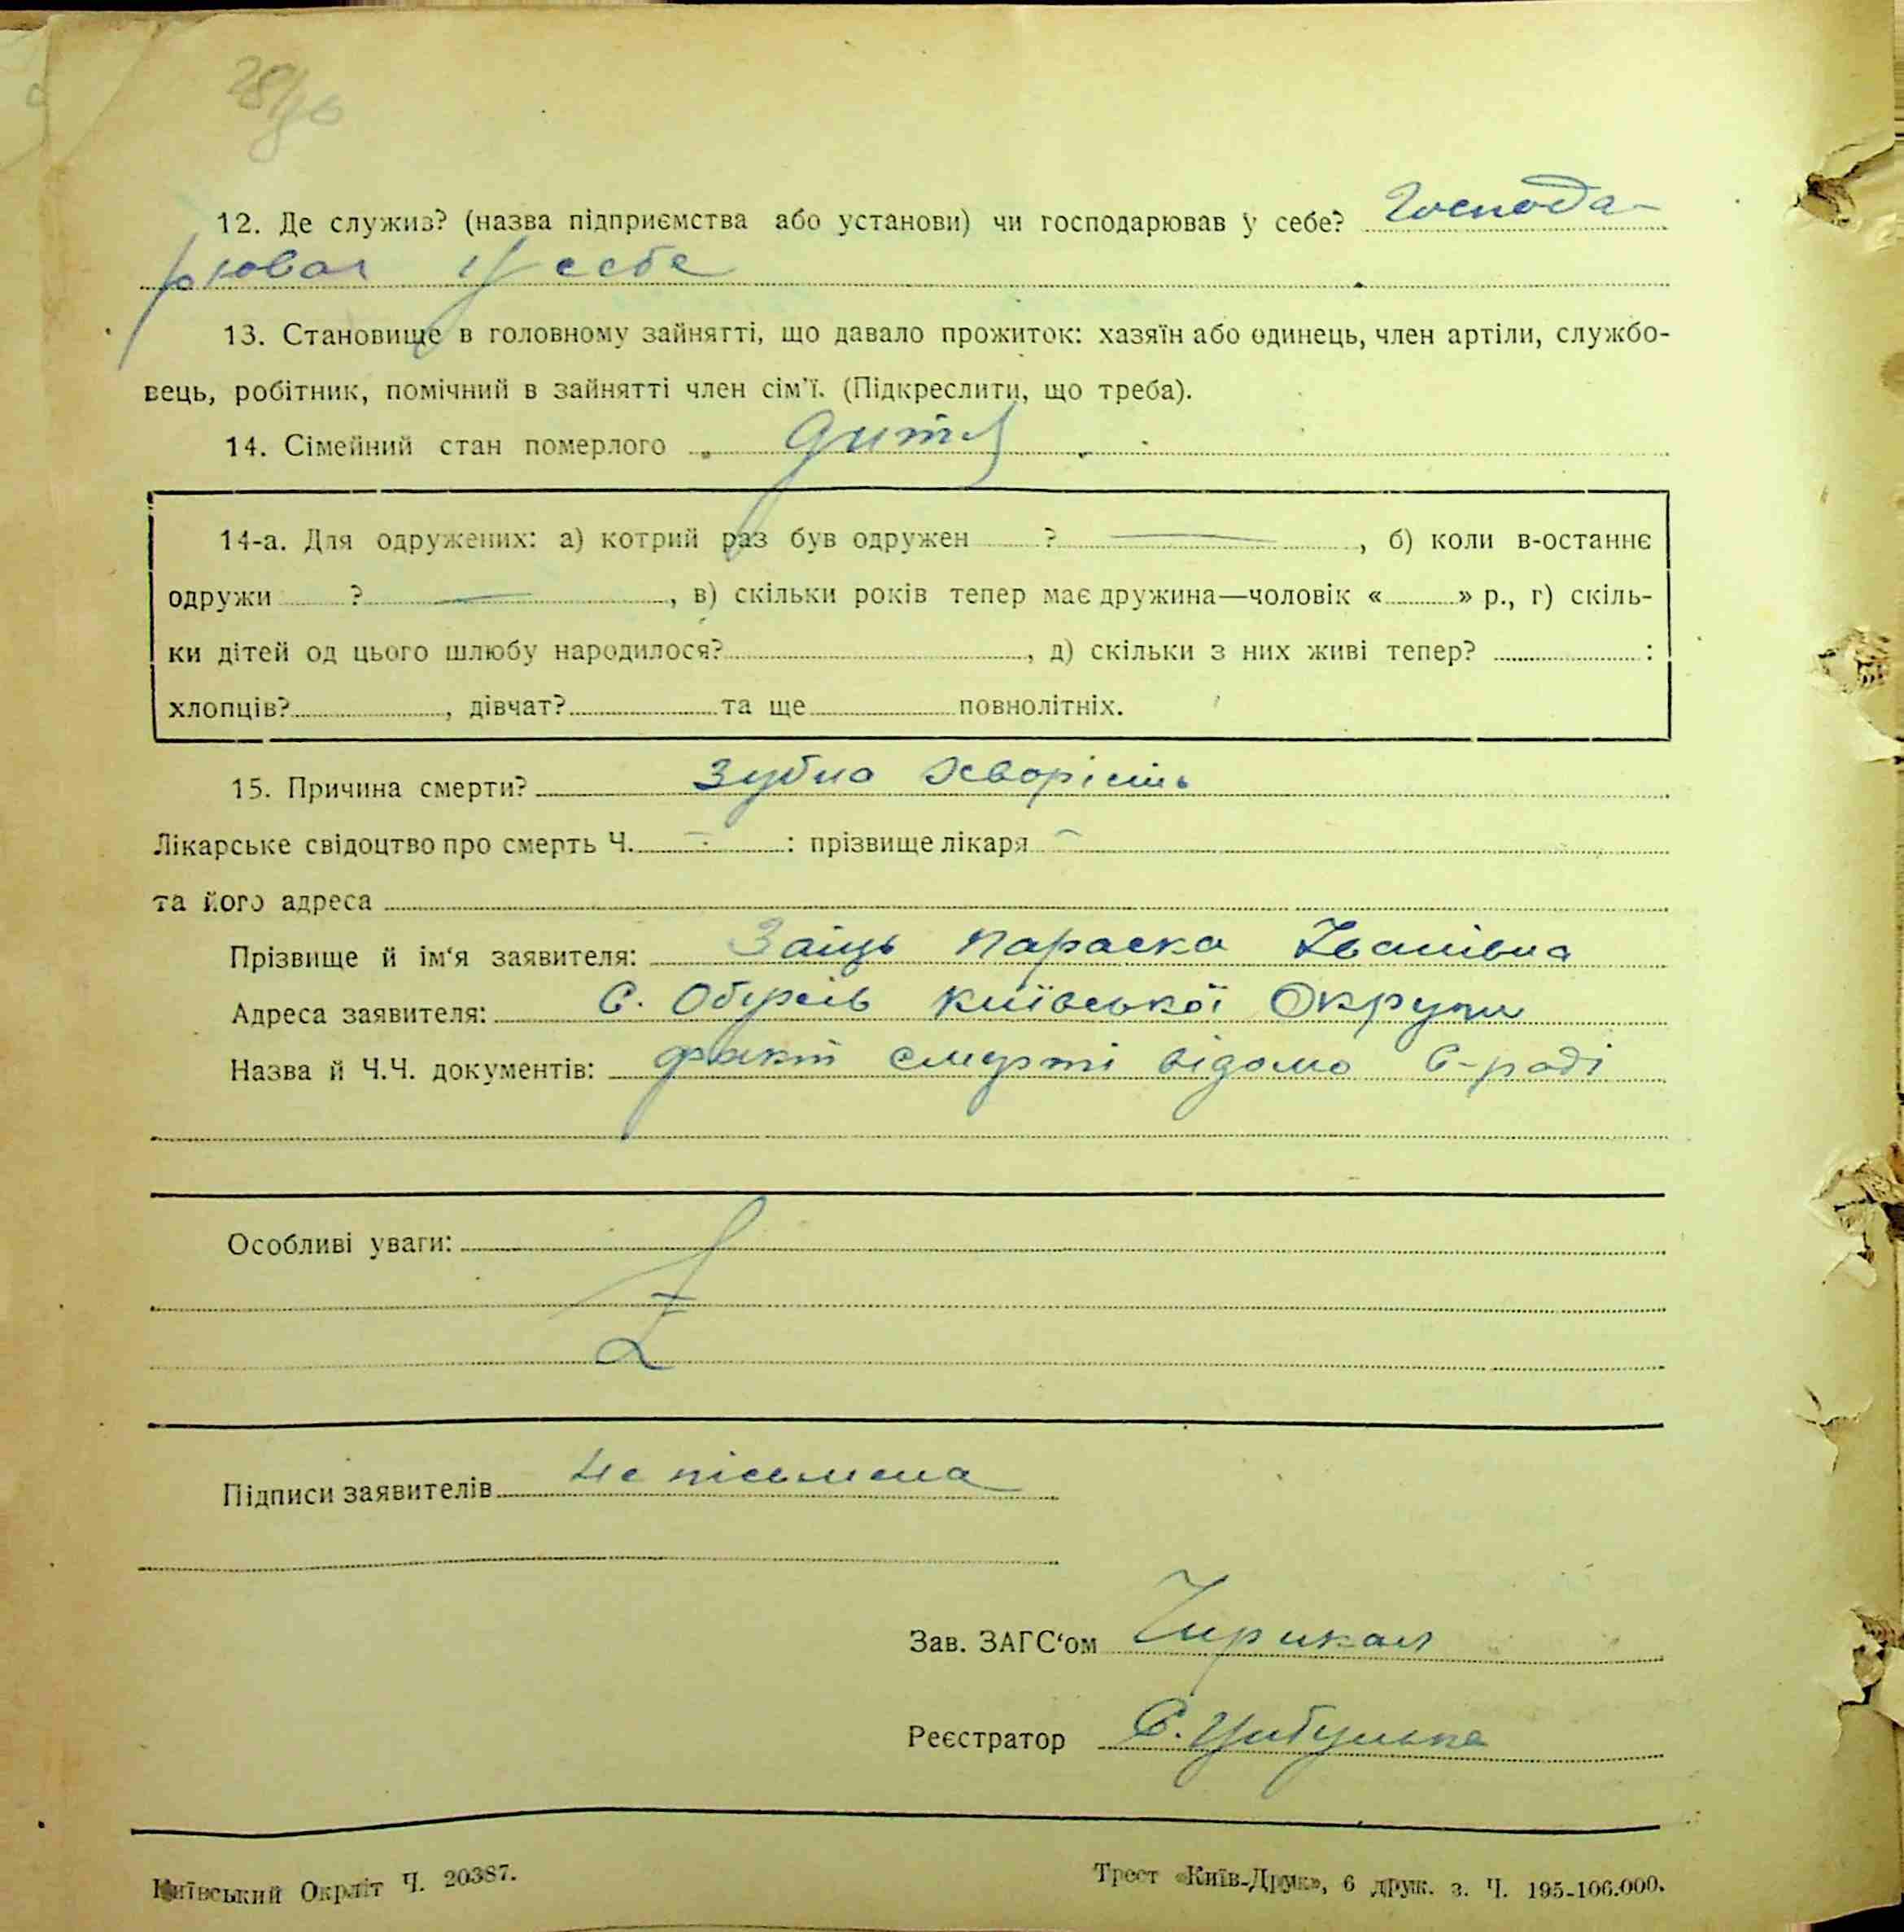 12. Де служив? (назва підприємства або установи) чи господарював у себе? Господа-
рював у себе
13. Становище в головному зайнятті, що давало прожиток: хазяїн або одинець, член артіли, службо-
вець, робітник, помічний в зайнятті член сім'ї. (Підкреслити, що треба).
14. Сімейний стан померлого дитя
14-а. Для одружених: а) котрий раз був одружен ? —, б) коли в-останнє
одружи ? —, в) скільки років тепер має дружина—чоловік « » р., г) скіль-
ки дітей од цього шлюбу народилося? , д) скільки з них живі тепер? :
хлопців? , дівчат? та ще повнолітніх.
15. Причина смерти? Зубна хворість
Лікарське свідоцтво про смерть Ч. - : прізвище лікаря -
та його адреса
Прізвище й ім'я заявителя: Заяць Параска Іванівна
Адреса заявителя: С. Обухів Київської Округи
Назва й Ч.Ч. документів: факт смерті відомо С-раді
Особливі уваги: Z
Підписи заявителів не письмена
Зав. ЗАГС'ом
Реєстратор С. Цибулька
Київський Окрліт Ч. 20387.
Трест «Київ-Друк», 6 друк. з. Ч. 195-106.000.